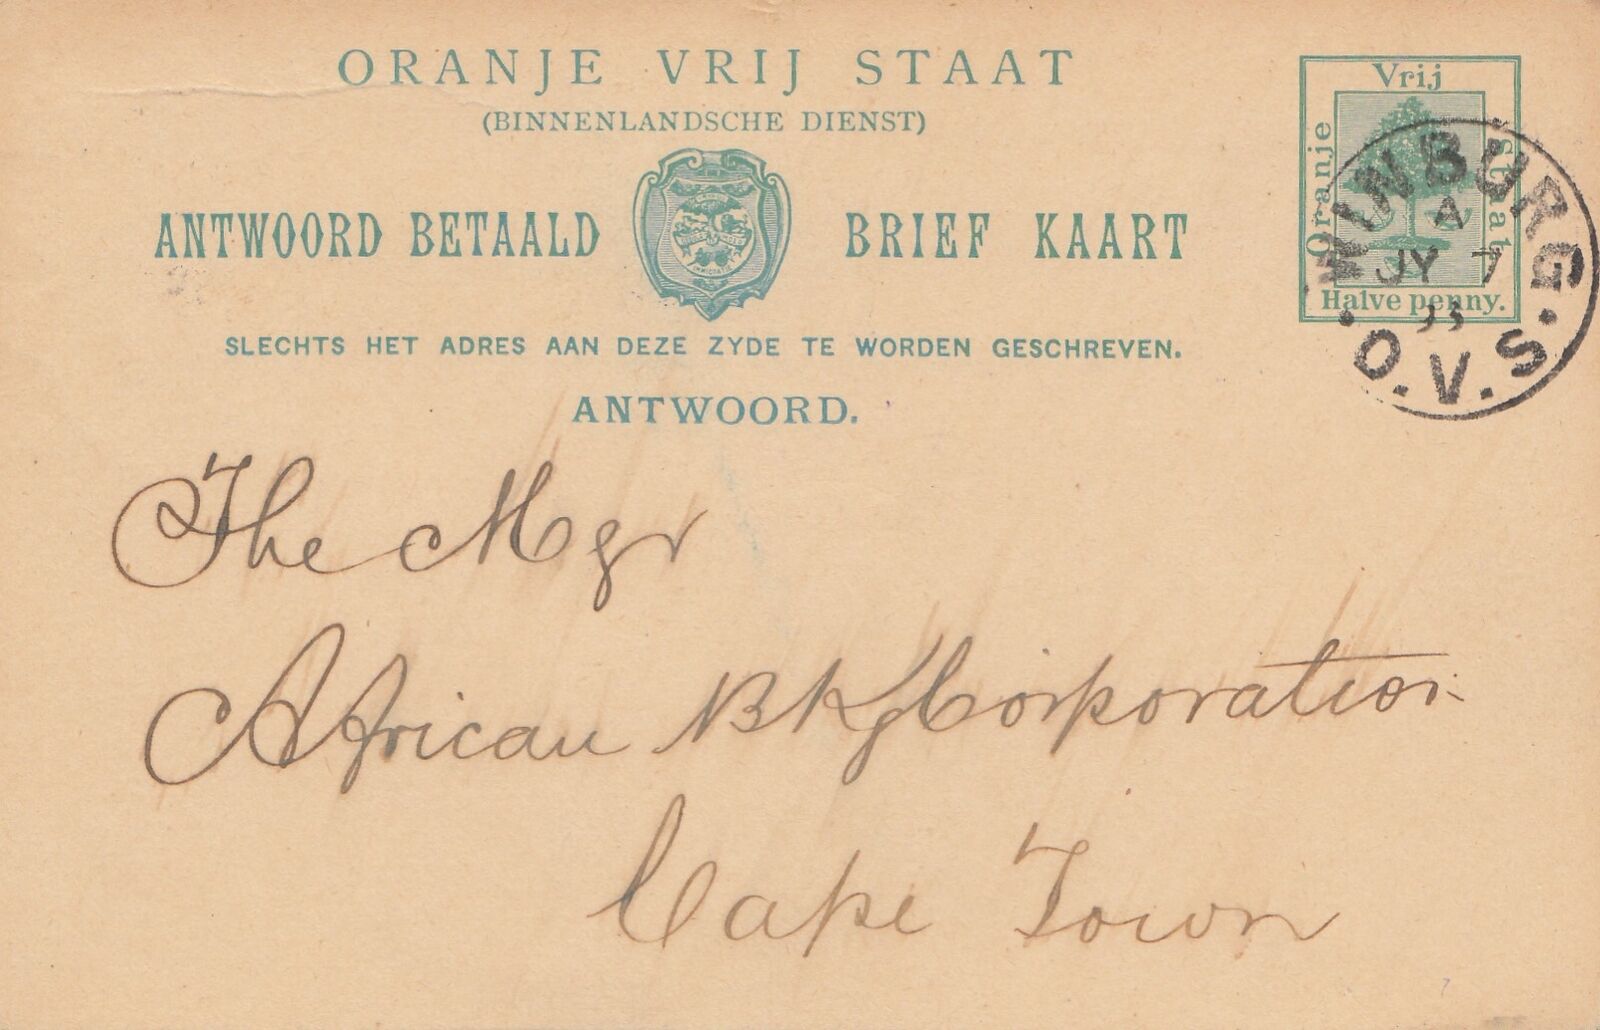 ORANJE VRIJ STAAT
(BINNENLANDSCHE DIENST)
ANTWOORD BETAALD BRIEF KAART
SLECHTS HET ADRES AAN DEZE ZYDE TE WORDEN GESCHREVEN.
ANTWOORD.
Vrij
Oranje
Staat
Halve penny.
WINBURG
A
JY 7
O.V.S.
The Mgr
African Bkg Corporation
Cape Town